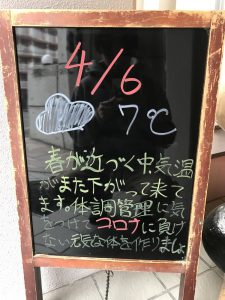 4/6
7℃
春が近づく中、気温
がまた下がって来て
きます。体調管理に気
をつけてコロナに負け
ない元気な体を作りましょ